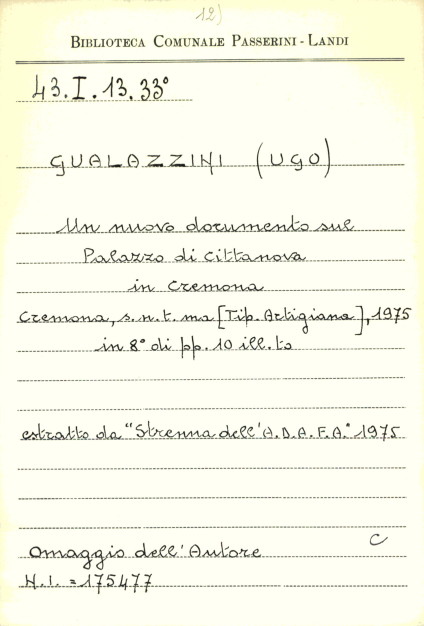 12)
BIBLIOTECA COMUNALE PASSERINI - LANDI
43.I.13.33°
GUALAZZINI (UGO)
Un nuovo documento sul
Palazzo di Cittanova
in Cremona
Cremona, s.n.t. ma [Tip. Artigiana], 1975
in 8° di pp. 10 ill.to
estratto da "Strenna dell'A.D.A.F.A." 1975
C
Omaggio dell'Autore
N.I. = 175477